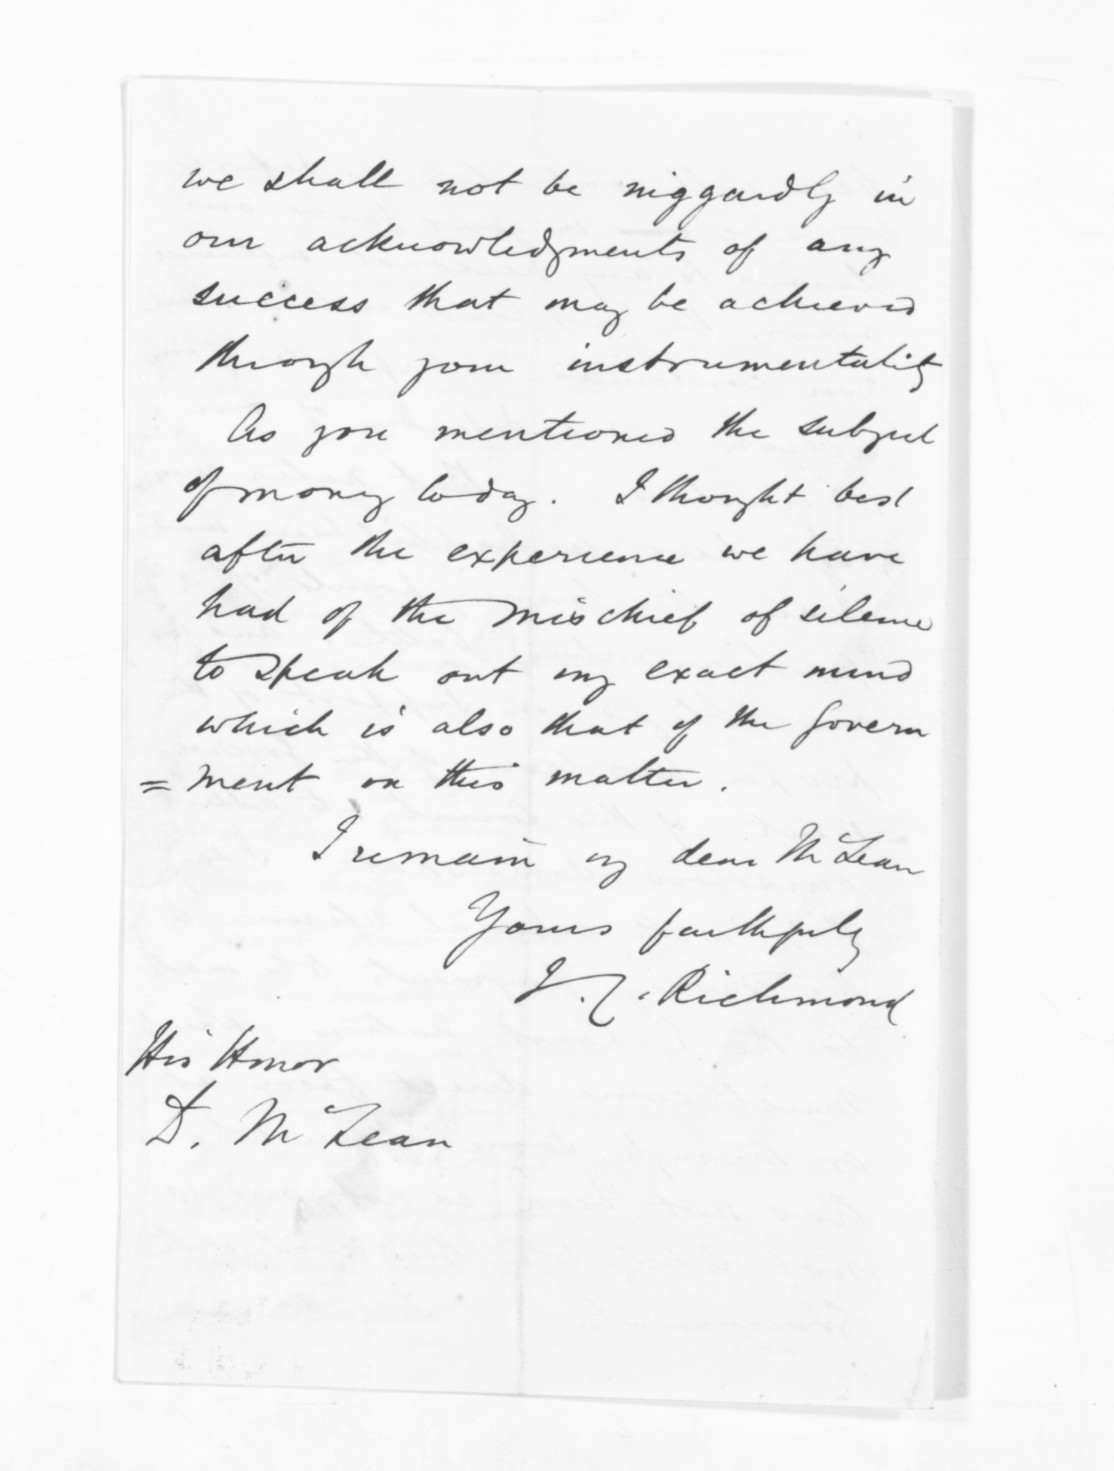 we shall not be niggardly in
our acknowledgments of any
success that may be achieved
through your instrumentality
As you mentioned the subject
of money today. I thought best
after the experience we have
had of the mischief of silence
to speak out my exact mind
which is also that of the Govern
= ment on this matter.
I remain my dear McLean
Yours faithfully
J.C. Richmond
His Honor
D. McLean